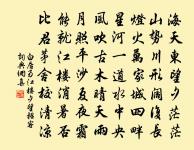 海天東望夕茫茫
山勢川形闊復長
燈火萬家城四畔
星河一道水中央
風吹古木晴天雨
月照平沙夏夜霜
能就江樓消暑否
比君茅舍校清涼
白居易江樓夕望招客
詞典網